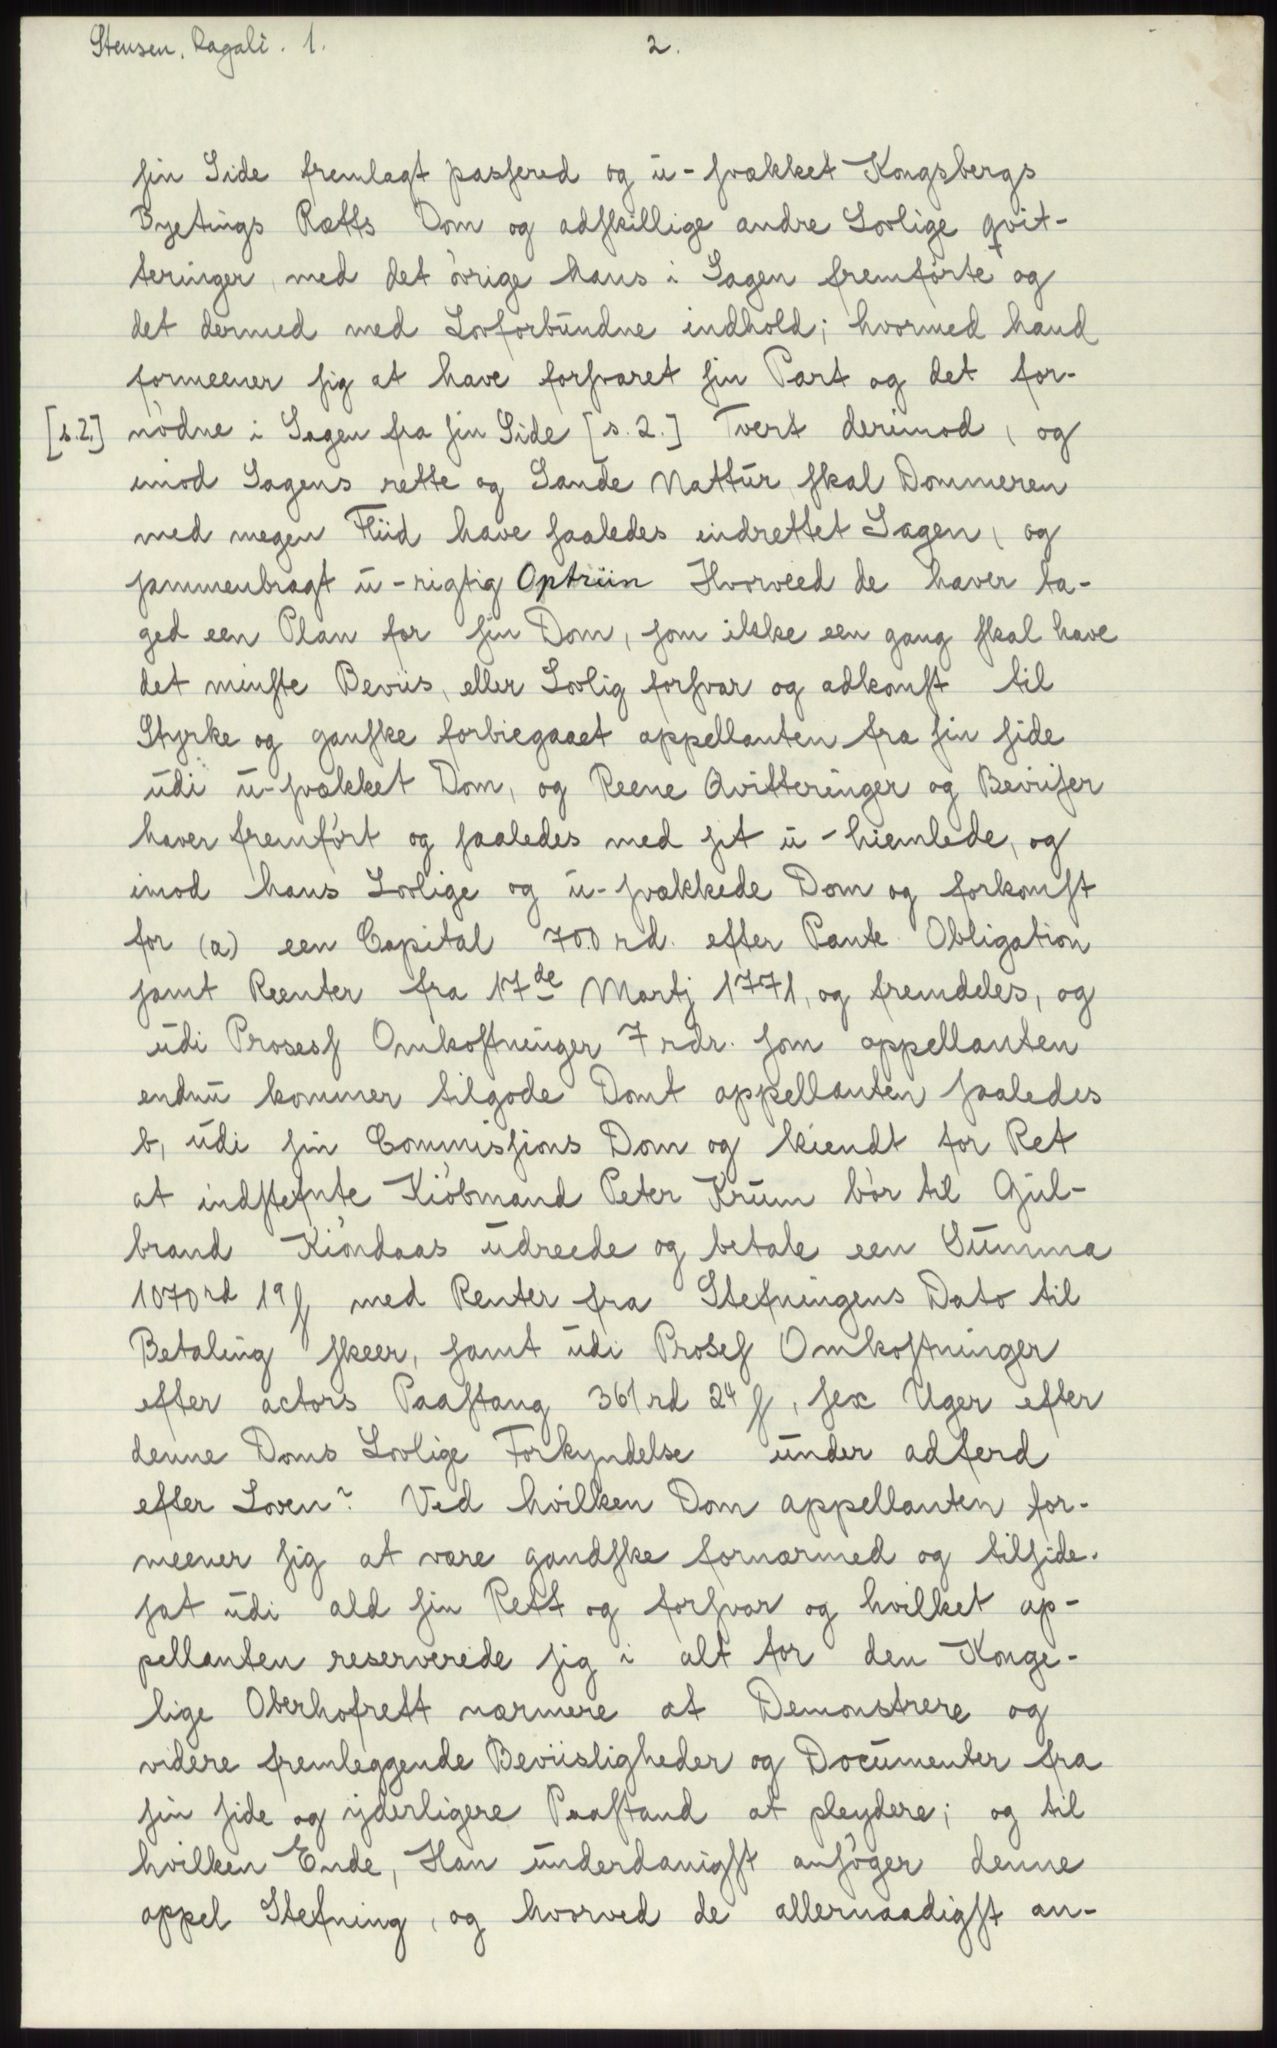 Stensen, Ragali. 1.
2.
sin Side fremlagt passered og u-svækket Kongsbergs
Byetings Rætts Dom og adskillige andre Lovlige qvit-
teringer, med det övrige hans i Sagen fremförte og
det dermed med Lovforbundne indhold; hvormed hand
formeener sig at have forsvaret sin Part og det for-
[s.2.] nödne i Sagen fra sin Side [s.2.] Tvert derimod, og
imod Sagens rette og Sande Nattur skal Dommeren
med megen Fliid have saaledes indrettet Sagen, og
sammenbragt u-rigtig Optriin Hvorveed de haver ta-
ged een Plan for sin Dom, som ikke een gang skal have
det minste Beviis, eller Lovlig forsvar og adkomst til
Styrke og ganske forbiegaaet appellanten fra sin side
udi u-svækket Dom, og Reene Qvitteringer og Beviiser
haver fremført og saaledes med sit u-hiemlede, og
imod hans Lovlige og u-svækkede Dom og forkomst
for (a) een Capital 700 rd. efter Pante Obligation
samt Reenter fra 17de Martj 1771, og fremdeles, og
udi Prosess Omkostninger 7 rdr. som appellanten
endnu kommer tilgode Domt appellanten saaledes
b, udi sin Commissions Dom og kiendt for Ret
at indstefnte Kiöbmand Peter Krum bör til Gul-
brand Kiöndaas udreede og betale een Summa
1070rd 19ſ med Renter fra Stefningens Dato til
Betaling skeer, samt udi Prosess Omkostninger
efter actors Paastang 361 rd 24 ſ, sex Uger efter
denne Doms Lovlige Forkyndelse under adferd
efter Loven? Ved hvilken Dom appellanten for-
meener sig at være gandske fornærmed og tilside-
sat udi ald sin Rett og forsvar og hvilket ap-
pellanten reserverede sig i alt for den Konge-
lige Oberhofrett nærmere at Demonstrere og
videre fremleggende Beviisligheder og Documenter fra
sin side og yderligere Paastand at pleydere; og til
hvilken Ende, Han underdanigst ansöger denne
appel Stefning, og hvorved de allernaadigst an-